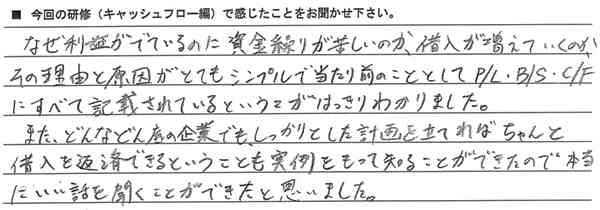 ■ 今回の研修（キャッシュフロー編）で感じたことをお聞かせ下さい。
なぜ利益がでているのに資金繰りが苦しいのか、借入が増えていくのか
その理由と原因がとてもシンプルで当たり前のこととしてP/L・B/S・C/F
にすべて記載されているということがはっきりわかりました。
また、どんなどん底の企業でも、しっかりとした計画を立てればちゃんと
借入を返済できるということも実例をもって知ることができたので本当
にいい話を聞くことができたと思いました。